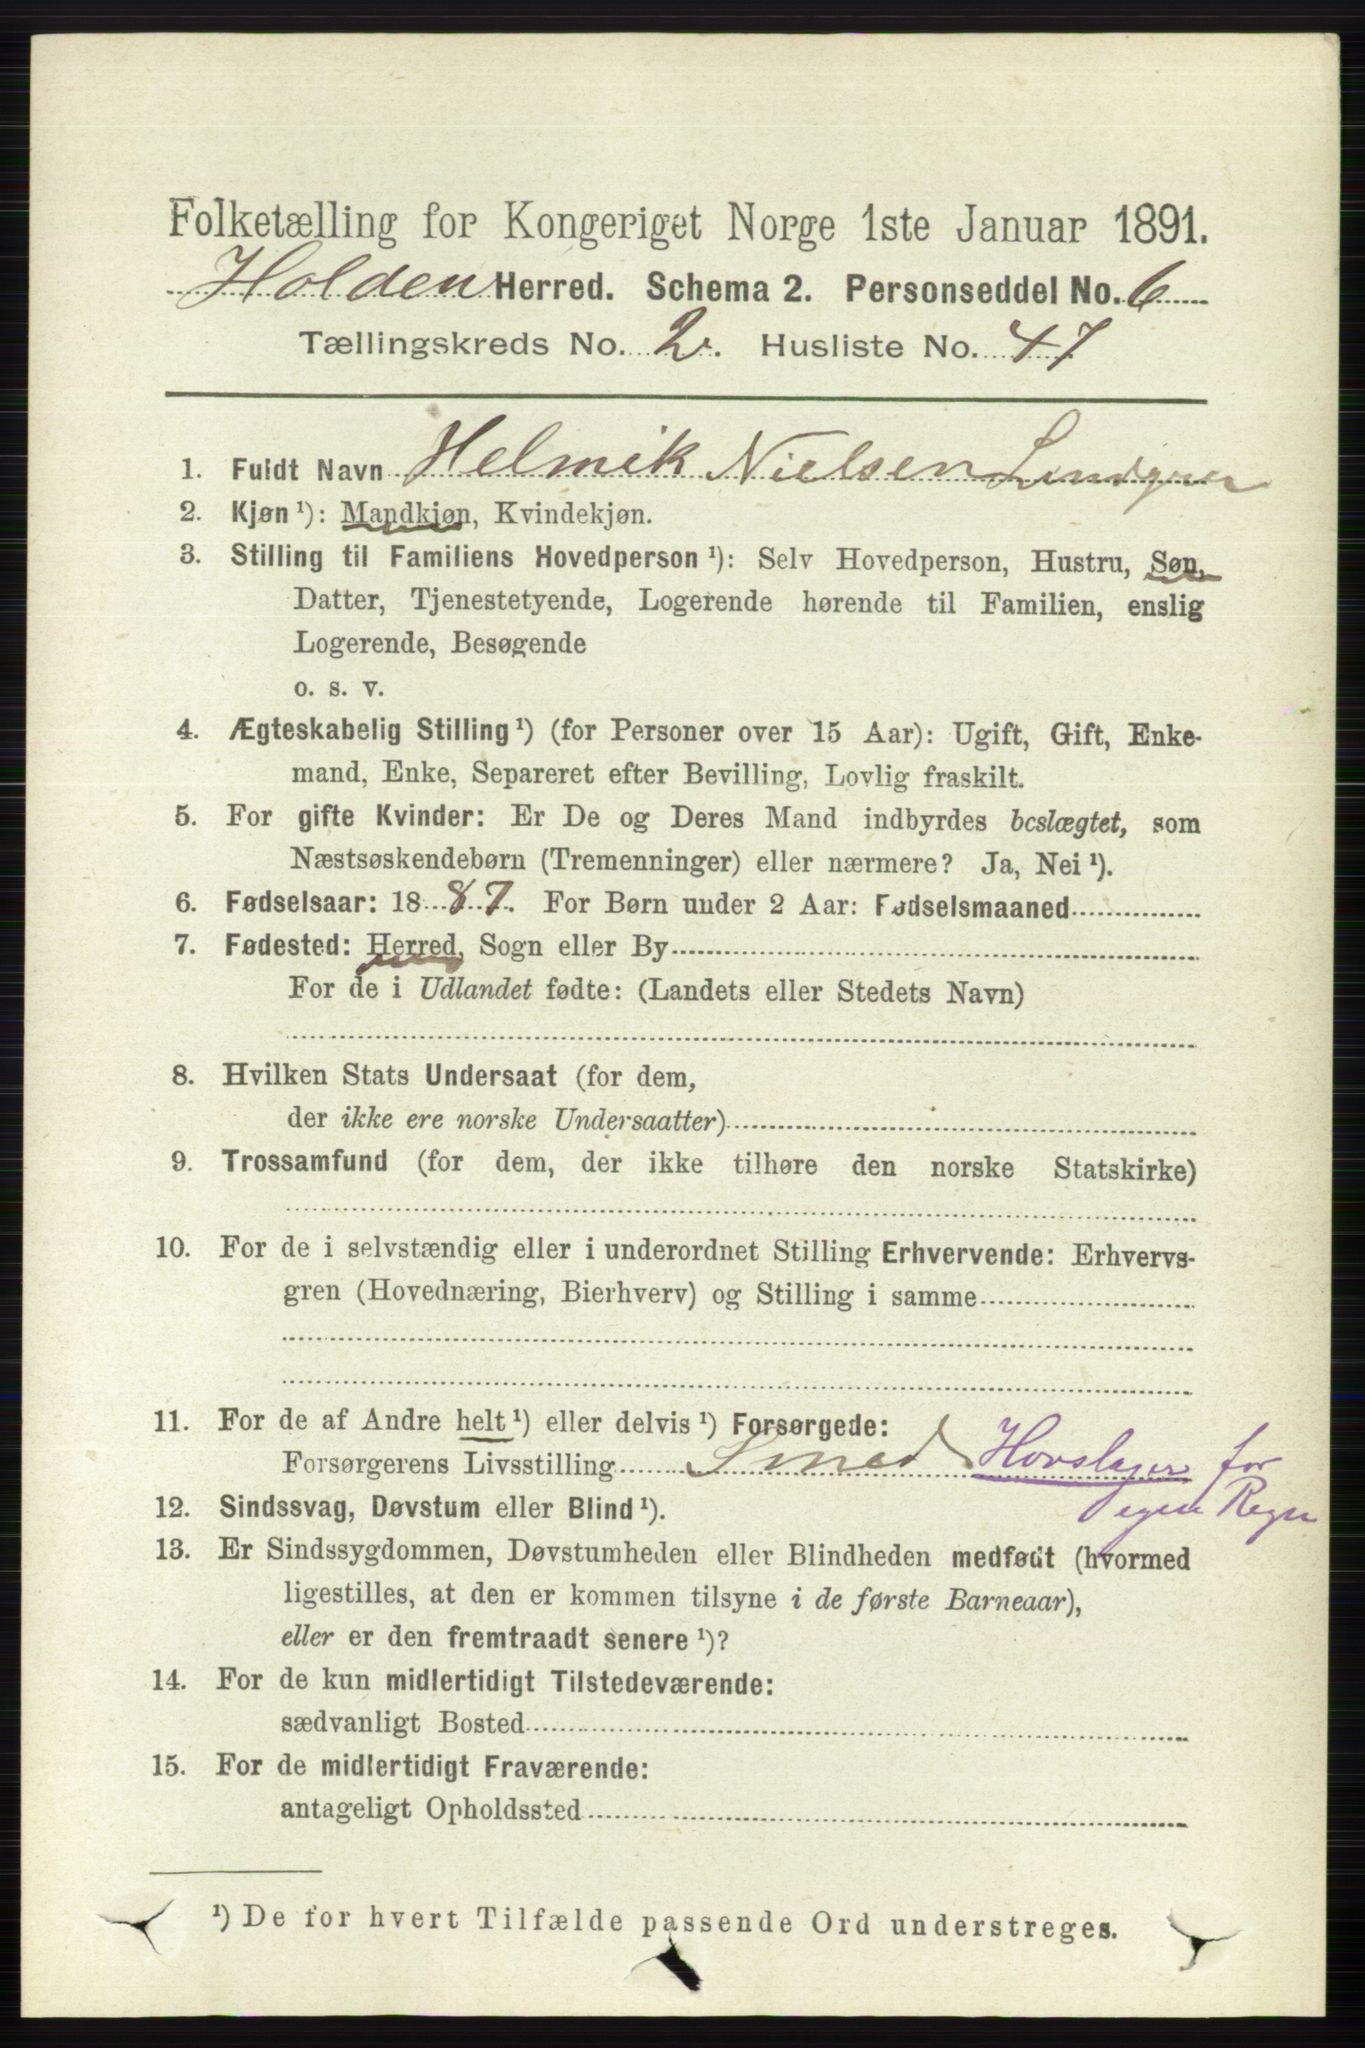 Folketælling for Kongeriget Norge 1ste Januar 1891.
Holden Herred. Schema 2. Personseddel No. 6
Tællingskreds No. 2. Husliste No. 47
1. Fuldt Navn Helmik Nielsen Lindgren
2. Kjøn ¹): Mandkjøn, Kvindekjøn.
3. Stilling til Familiens Hovedperson ¹): Selv Hovedperson, Hustru, Søn,
Datter, Tjenestetyende, Logerende hørende til Familien, enslig
Logerende, Besøgende
o. s. v.
4. Ægteskabelig Stilling ¹) (for Personer over 15 Aar): Ugift, Gift, Enke-
mand, Enke, Separeret efter Bevilling, Lovlig fraskilt.
5. For gifte Kvinder: Er De og Deres Mand indbyrdes beslægtet, som
Næstsøskendebørn (Tremenninger) eller nærmere? Ja, Nei ¹).
6. Fødselsaar: 1887. For Børn under 2 Aar: Fødselsmaaned
7. Fødested: Herred, Sogn eller By
For de i Udlandet fødte: (Landets eller Stedets Navn)
8. Hvilken Stats Undersaat (for dem,
der ikke ere norske Undersaatter)
9. Trossamfund (for dem, der ikke tilhøre den norske Statskirke)
10. For de i selvstændig eller i underordnet Stilling Erhvervende: Erhvervs-
gren (Hovednæring, Bierhverv) og Stilling i samme
11. For de af Andre helt ¹) eller delvis ¹) Forsørgede:
Forsørgerens Livsstilling Smed Hovslager for
egen Regn
12. Sindssvag, Døvstum eller Blind ¹).
13. Er Sindssygdommen, Døvstumheden eller Blindheden medfødt (hvormed
ligestilles, at den er kommen tilsyne i de første Barneaar),
eller er den fremtraadt senere ¹)?
14. For de kun midlertidigt Tilstedeværende:
sædvanligt Bosted
15. For de midlertidigt Fraværende:
antageligt Opholdssted
¹) De for hvert Tilfælde passende Ord understreges.